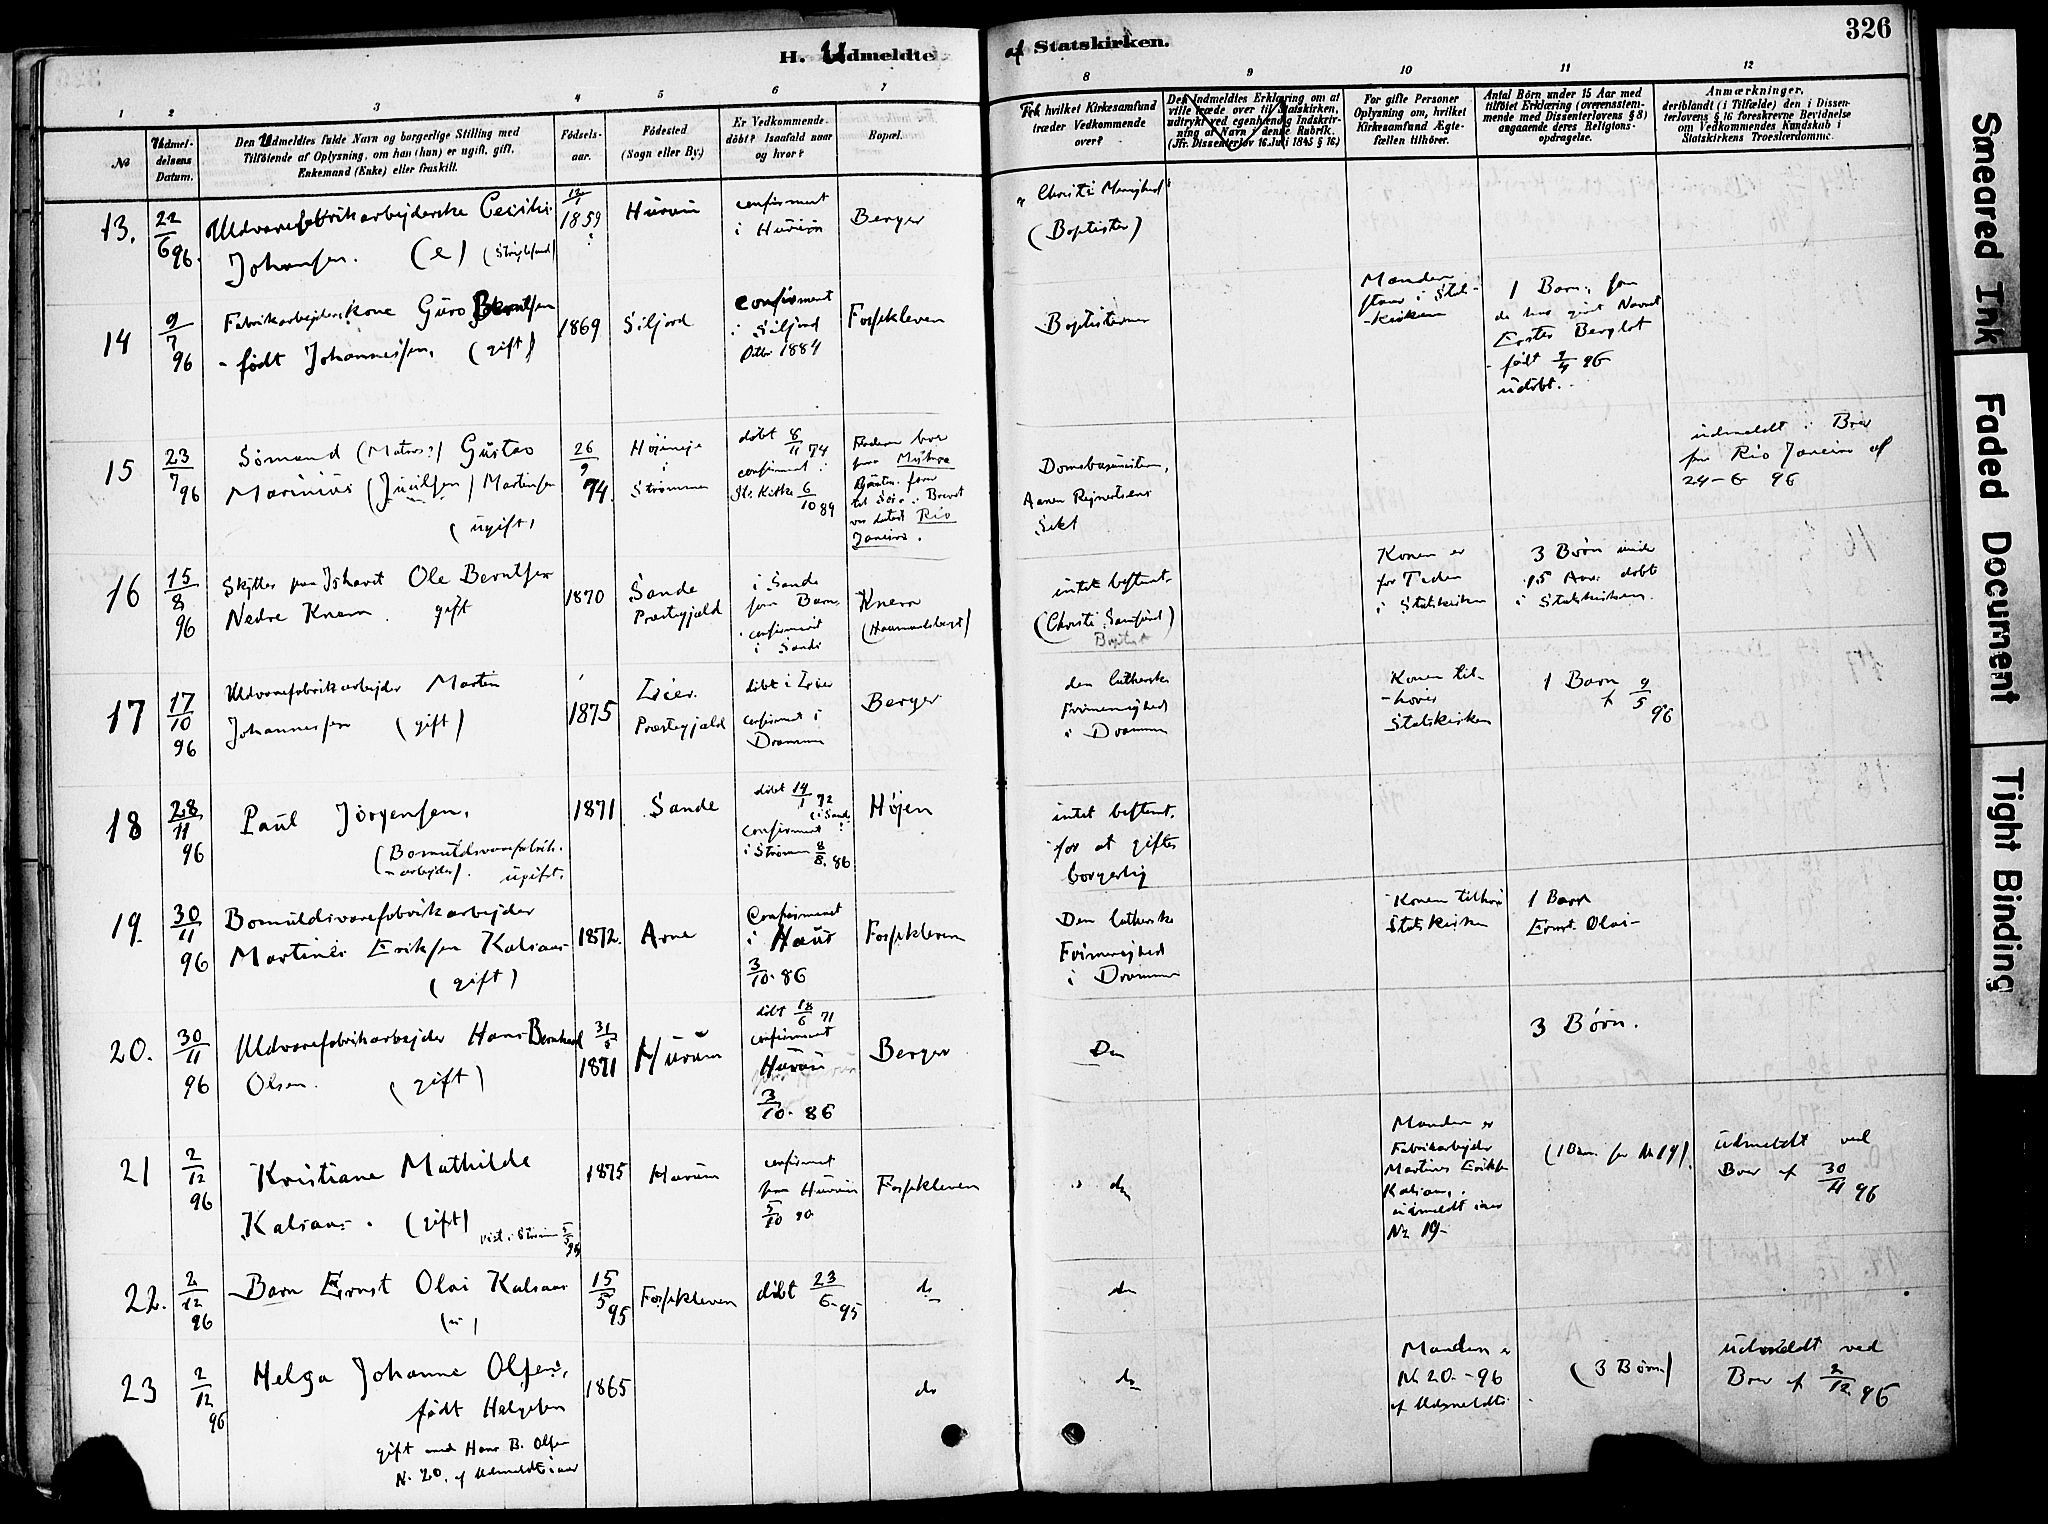 326
H. Udmeldte af Statskirken.
1 2 3 4 5 6 7 8 9 10 11 12
No
Udmel-
delsens
Datum.
Den Udmeldtes fulde Navn og borgerlige Stilling med
Tilföiende af Oplysning, om han (hun) er ugift, gift,
Enkemand (Enke) eller fraskilt.
Födsels-
aar.
Födested
(Sogn eller By.)
Er Vedkommende
döbt? Isaafald naar
og hvor?
Bopæl.
hvilket Kirkesamfund
træder Vedkommende
over?
Den Indmeldtes Erklæring om at
ville træde over til Statskirken,
udtrykt ved egenhændig Indskriv-
ning af Navn i denne Rubrik.
(Jfr. Dissenterlov 16. Juli 1845 § 16)
For gifte Personer
Oplysning om, hvilket
Kirkesamfund Ægte-
fællen tilhörer.
Antal Börn under 15 Aar med
tilföiet Erklæring (overensstem-
mende med Dissenterlovens § 8)
angaaende deres Religions-
opdragelse.
Anmærkninger,
deriblandt (i Tilfælde) den i Dissen-
terlovens § 16 foreskrevne Bevidnelse
om Vedkommendes Kundskab i
Statskirkens Troeslærdomme.
13. 22/6 96. Uldvarefabrikarbejderske Cecilie
Johansen. (e)
1859
Hurum
confirmeret
i Hurum
Berger
"Christi Menighed"
(Baptister)
14 9/7 96
Fabrikarbejderskone Guro Berntsen
- født Johannesen. (gift)
1869
Siljord
confirmeret
i Siljord
Octbr 1884
Fossekleven
Baptisterne
Manden
staar i Stats-
-kirken
1 Barn, som
de har givet Navnet
Ester Bergliot
- født 2/4 96
udøbt.
15 23/7 96
Sømand (Matros?) Gustav
Marinius (Juulsen) Martinsen
(ugift)
26/9 74.
Højen
i
Strømmen
døbt 8/11 74
confirmeret i
St. Kirke 6/10 89
Rio
Janeiro.
Sekt
udmeldt i Brev
fra Rio Janeiro af
24-6 96
16 15/8 96
Ole Berntsen
Nedre Knem gift
1870
Sande
Præstegjeld
i Sande
som Barn,
confirmeret
i Sande
Knem
intet bestemt.
(Christi Samfund)
Baptist
Konen er
for Tiden
i Statskirken
3 Børn under
15 Aar. døbt
i Statskirken.
17 17/10 96
Uldvarefabrikarbejder Martin
Johannessen (gift)
1875
Lier.
Præstegjeld
døbt i Lier
confirmeret i
Drammen
Berger
den lutherske
Frimenighed
i Drammen
Konen til-
-hører
Statskirken
1 Barn
f 9/5 96
18 28/11 96
Paul Jörgensen,
(Bomuldsvarefabrik-
arbejder). ugift.
1871
Sande
døbt 14/1 72
i Sande
confirmeret
i Strømm 8/8. 86
Højen
intet bestemt.
for at giftes
borgerlig
19. 30/11 96
Bomuldsvarefabrikarbejder
Martinus Eriksen Kalsaas
(gift)
1872.
Arne
Confirmeret
i Haus
3/10. 86
Fossekleven
Den lutherske
Frimenighed
i Drammen
Konen tilhør
Statskirken
1 Barn
Ernst Olai-
20. 30/11 96
Uldvarefabrikarbejder Hans Bernhard
Olsen. (gift)
1871
Hurum
døbt 18/6 71
confirmeret
Hurum
3/10. 86
Berger
Do
3 Børn.
21 2/12 96
Kristiane Mathilde
Kalsaas. (gift)
1875
Hurum
confirmeret
paa Hurum
5/10 90
Fossekleven
do
Manden er
Fabrikarbejder
Martinus Eriksen
Kalsaas,
udmeldt
No 19-
(1 Barn se No 19).
udmeldt ved
Brev af 30/11 96
22. 2/12 96
Barn Ernst Olai Kalsaas
15/5 95
Fossekleven
døbt 23/6. 95
do
do
23 2/12 96
Helga Johanne Olsen,
født Helgesen
gift med Hans B. Olsen
N. 20. af Udmeldte i aar
1865
do
do
Manden er
N. 20 - 96
af Udmeldte
(3 Børn)
udmeldt ved
Brev af 2/12 96
Smeared Ink
Faded Document
Tight Binding